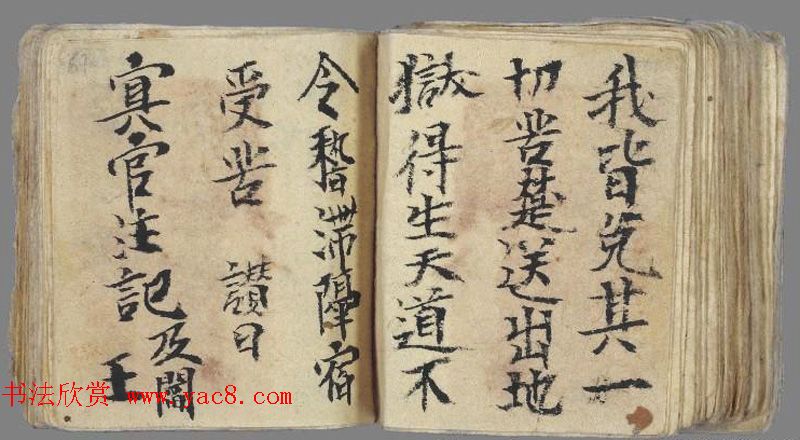 我皆免其一
切苦楚送出地
獄得生天道不
令稽滯隔宿
受苦 讚曰
冥官注記及閻
王
书法欣赏 www.yac8.com